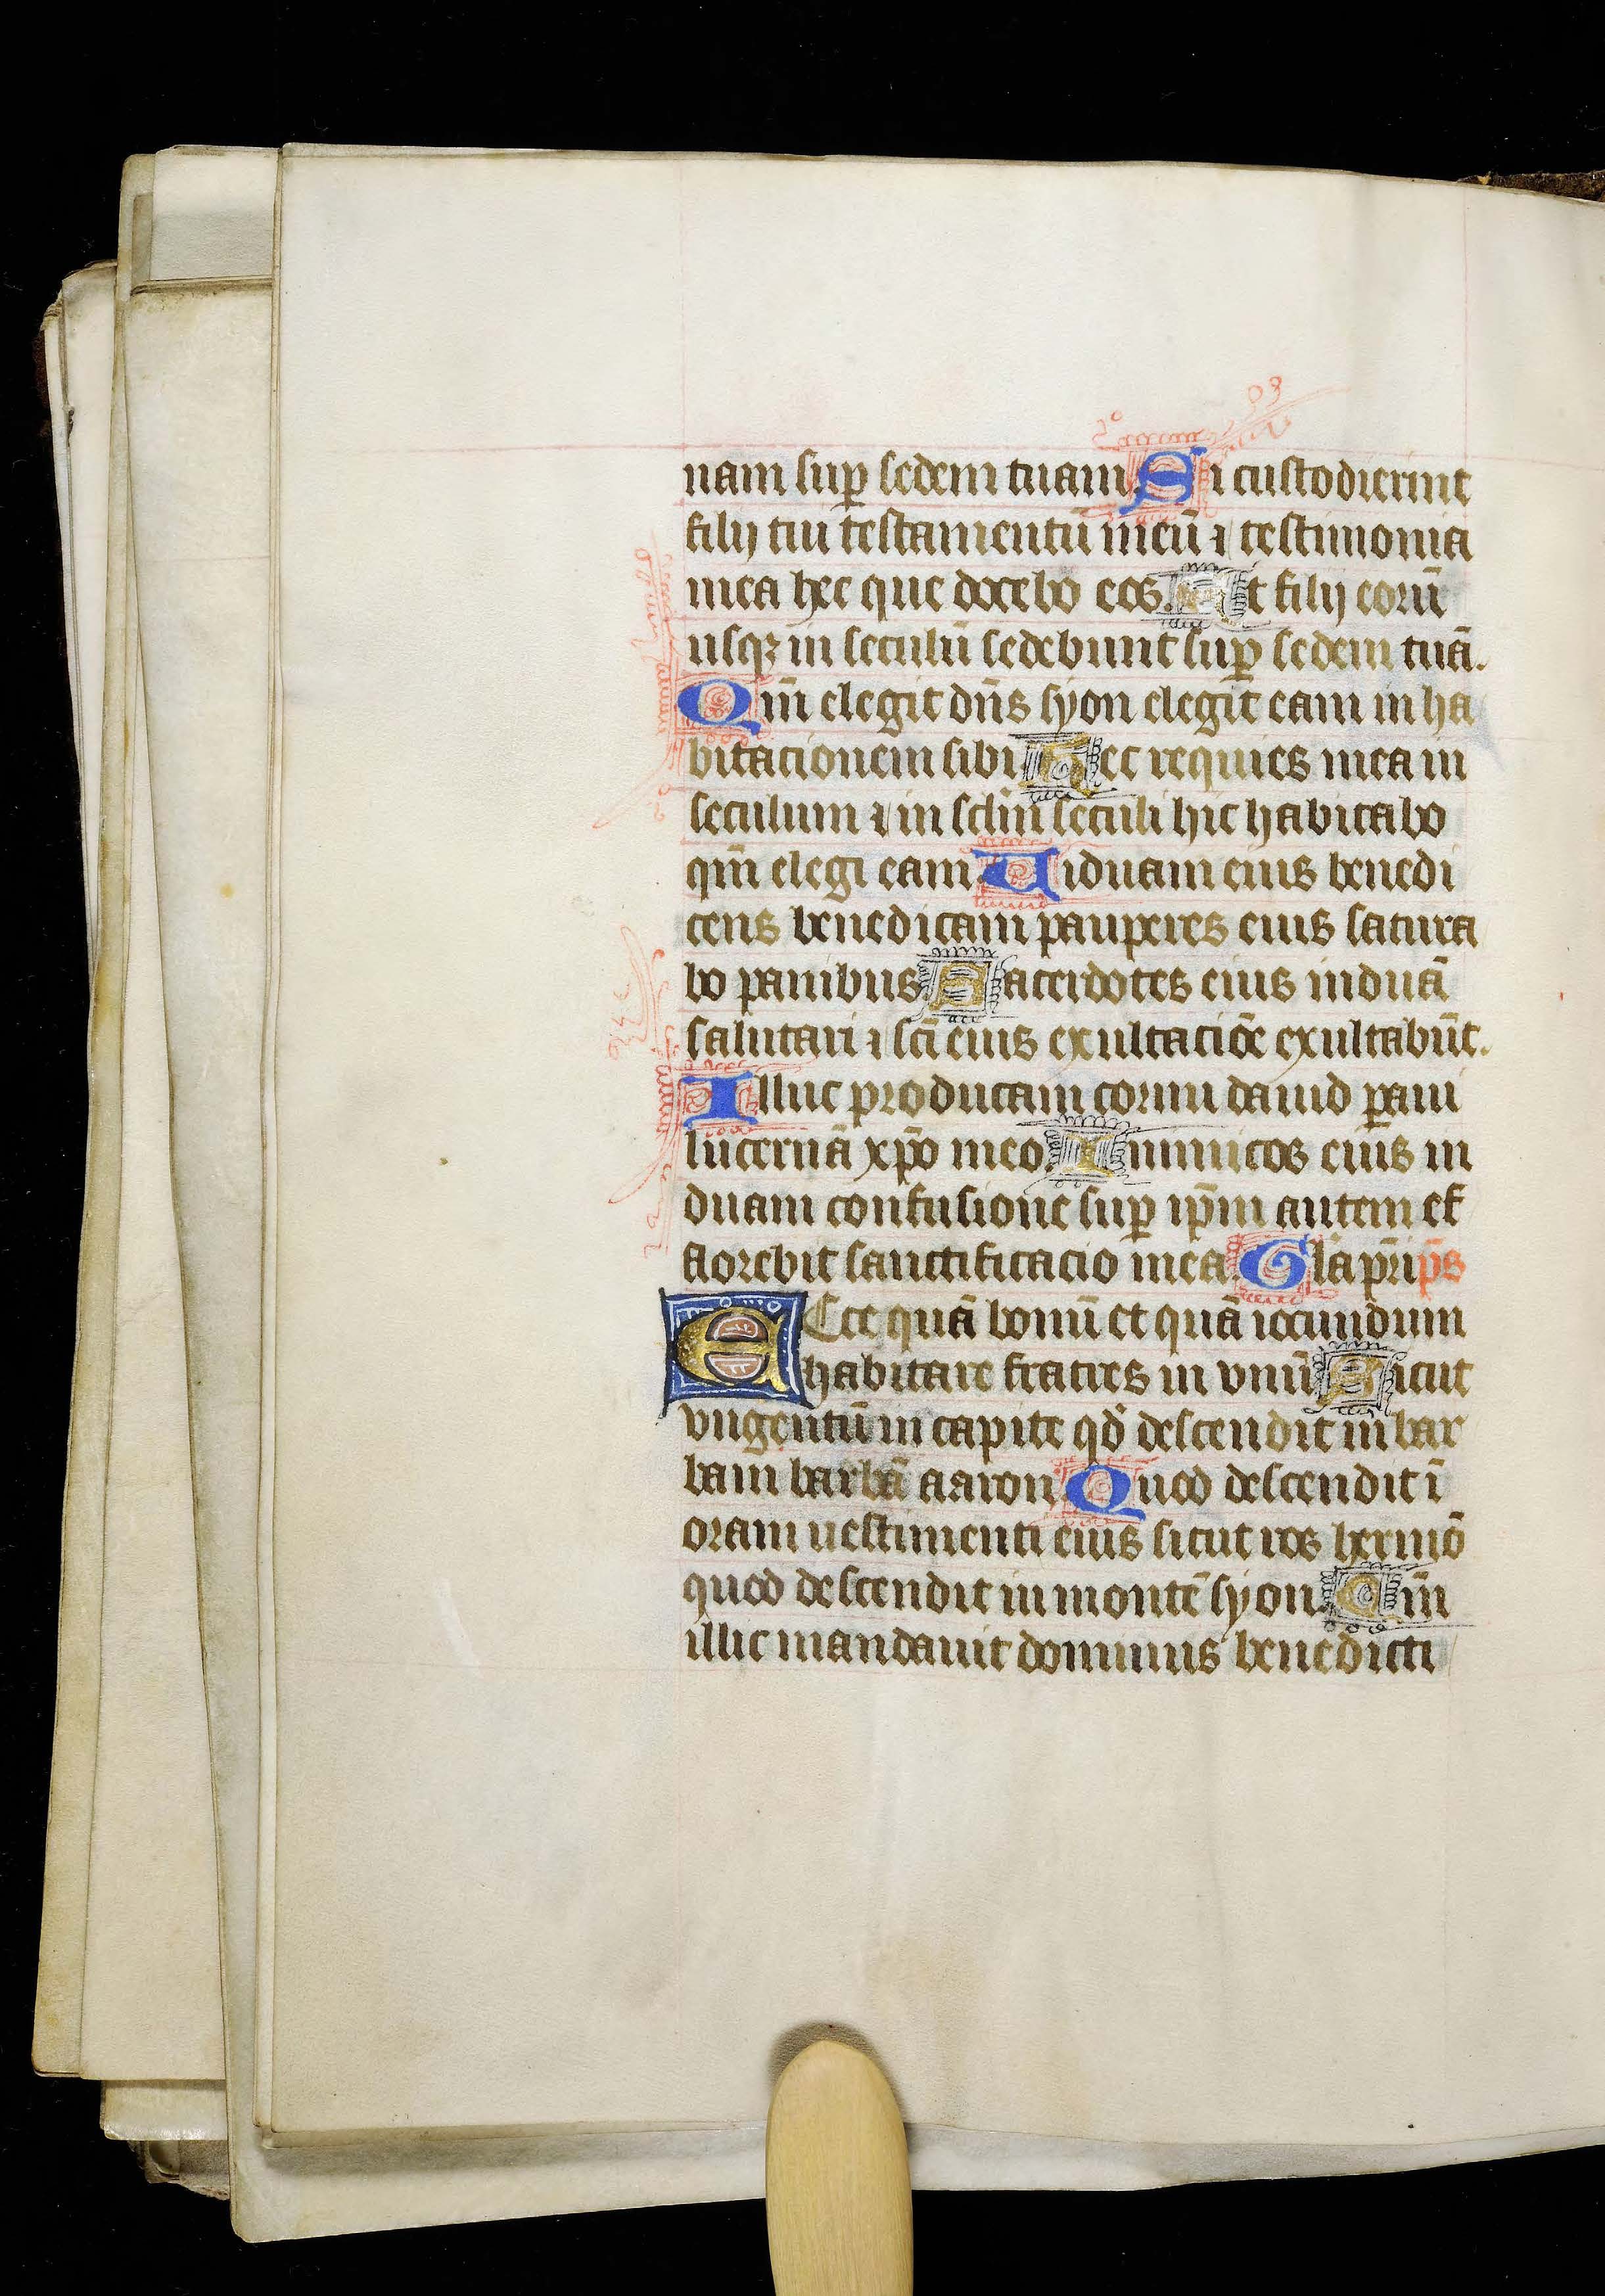 nam sup̱ sedem tuam. Si custodierint
filij tui testamentū meū ⁊ testimonia
mea hec que docebo eos. Et filij eorū
usqꝫ in seculū sedebunt sup̱ sedem tuā.
Qm̄ elegit dn̄s syon elegit eam in ha
bitacionem sibi. Hec requies mea in
seculum ⁊ in sclm̄ seculi hic habitabo
qm̄ elegi eam. Uiduam eius benedi
cens benedicam pauperes eius satura
bo panibus. Sacerdotes eius induā
salutari ⁊ scī eius exultaciōe exultabūt.
Illuc producam cornu dauid ꝑaui
lucernā xp̄o meo. Inimicos eius in
duam confusione suꝑ ip̄m autem ef
florebit sanctificacio mea. Gl̄a pr̄i p̄s
ECce quā bonū et quā iocundum
habitare fratres in vnū. Sicut
vngentū in capite qd̄ descendit in bar
bam barbā aaron. Quod descendit ī
oram uestimenti eius sicut ros hermō
quod descendit in montē syon. Qm̄
illic mandauit dominus benedicti